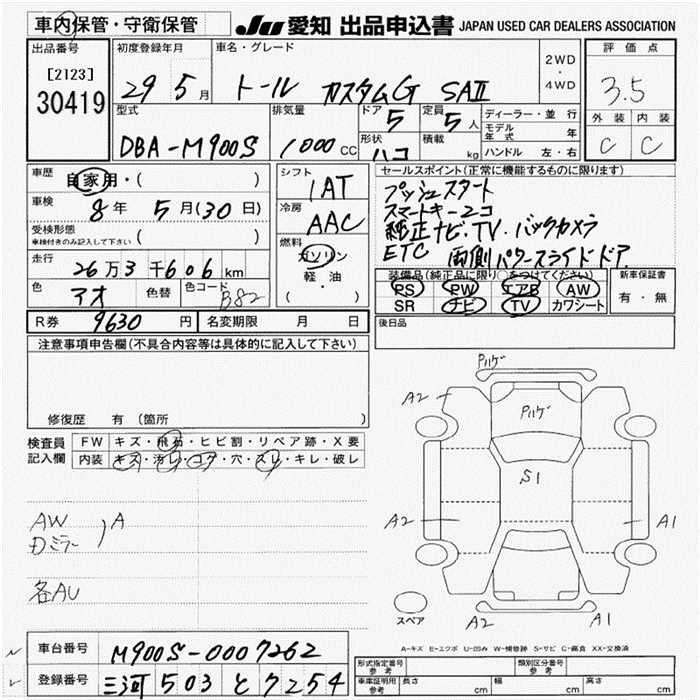 車内保管・守衛保管
JU 愛知 出品申込書 JAPAN USED CAR DEALERS ASSOCIATION
出品番号
[2123]
30419
初度登録年月
29 5月
車名・グレード
トール カスタムG SAⅡ
2WD
・
4WD
評価点
3.5
外装 内装
C C
型式
DBA-M900S
排気量
1000 CC
ドア
5
定員
5人
形状
ハコ
積載
kg
ディーラー・並行
モデル年式 年
ハンドル 左・右
車歴
自家用・( )
車検
8年 5月(30日)
受検形態
車検付きのみ記入して下さい ( )
走行
26万3千606km
色
アオ
色替
色コード
B82
シフト
IAT
冷房
AAC
燃料
ガソリン
軽・油
( )
セールスポイント(正常に機能するものに限ります)
プッシュスタート
スマートキー2コ
純正ナビ、TV、バックカメラ
ETC 両側パワースライドドア
装備品(純正品に限り○をつけてください)
PS PW エアB AW
SR ナビ TV カワシート
新車保証書
有・無
R券 9630円
名変期限 月 日
後日品
注意事項申告欄(不具合内容等は具体的に記入して下さい)
修復歴 有(箇所 )
検査員記入欄
FW キズ・飛石・ヒビ割・リペア跡・X要
内装 キズ・汚レ・コゲ・穴・スレ・キレ・破レ
AW
カミラー ) A
各AU
Pハゲ
A2
Pハゲ
S1
A2
A1
A2
A1
スペア
A-キズ E-エクボ U-凹み W-補修跡 S-サビ C-腐食 XX-交換済
車台番号
M900S-0007262
登録番号
三河 503 と 7254
形式指定番号
参考
類別区分番号
参考
車庫証明用
参考
長さ cm
幅 cm
高さ cm